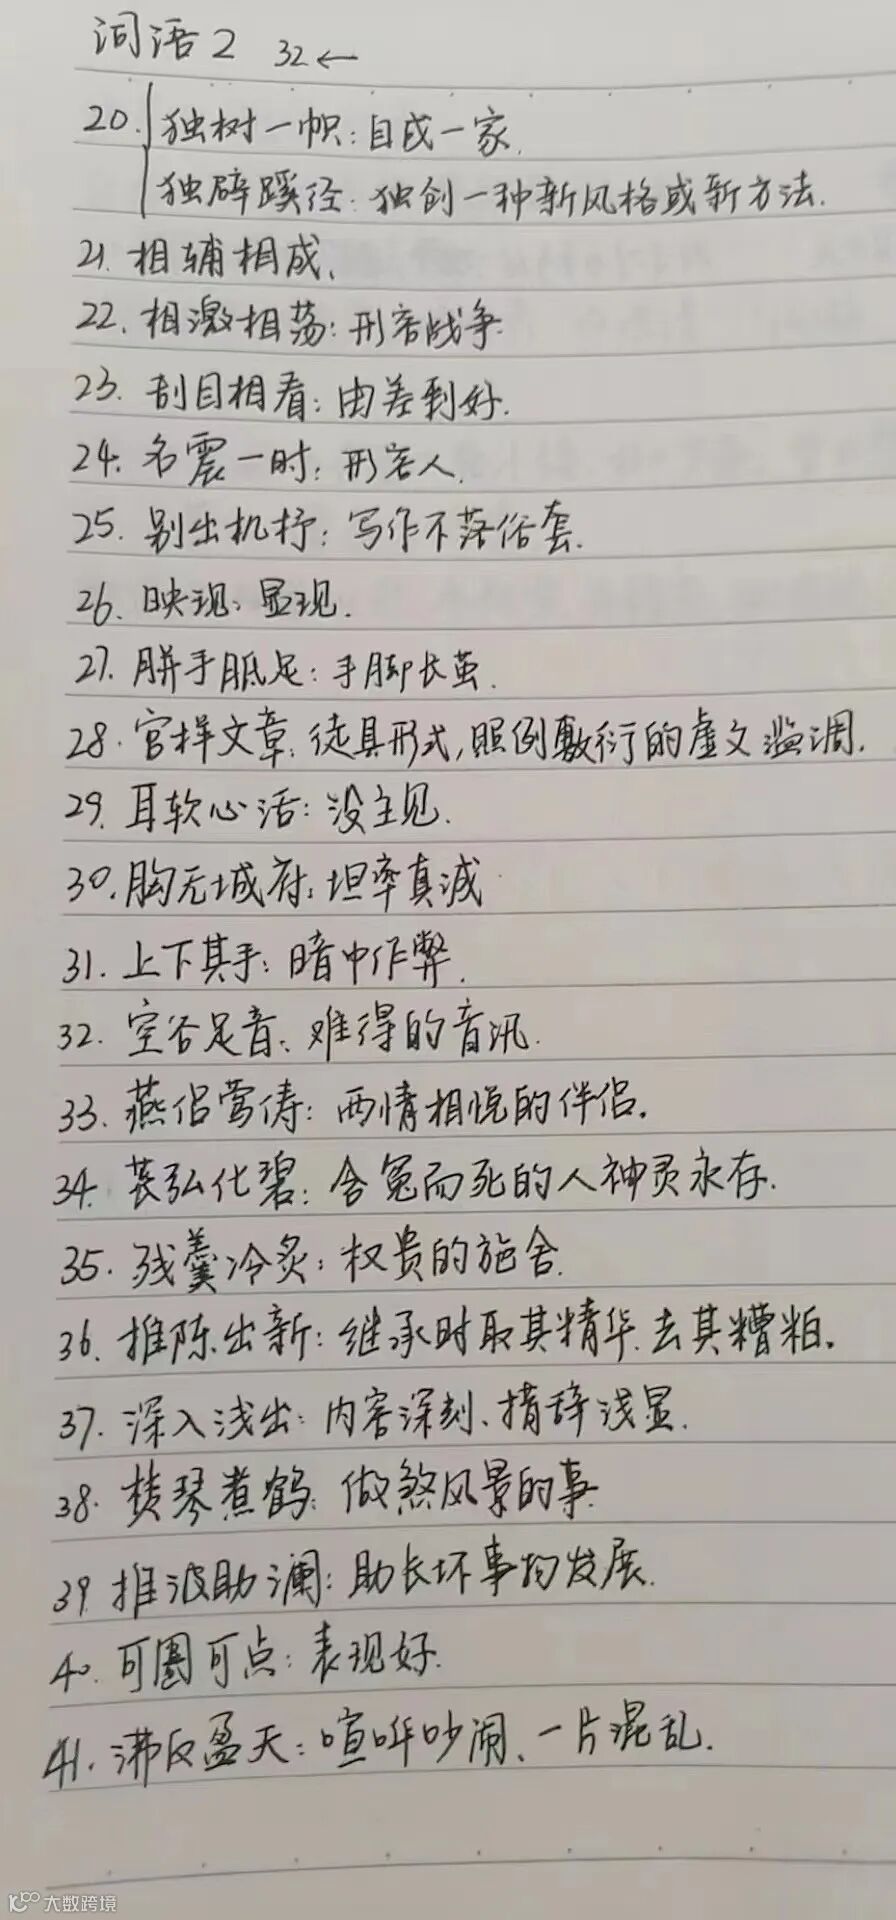 词语2 32←
20. 独树一帜:自成一家.
独辟蹊径:独创一种新风格或新方法.
21.相辅相成、
22.相激相荡:形容战争.
23.刮目相看:由差到好.
24.名震一时:形容人.
25.别出机杼:写作不落俗套.
26.映现:显现.
27.胼手胝足:手脚长茧.
28.官样文章:徒具形式,照例敷衍的虚文滥调.
29.耳软心活:没主见.
30.胸无城府:坦率真诚
31.上下其手:暗中作弊.
32.空谷足音:难得的音讯.
33.燕侣莺俦:两情相悦的伴侣.
34.苌弘化碧:含冤而死的人神灵永存.
35.残羹冷炙:权贵的施舍.
36.推陈出新:继承时取其精华.去其糟粕.
37.深入浅出:内容深刻、措辞浅显.
38.焚琴煮鹤:做煞风景的事
39.推波助澜:助长坏事物发展.
40.可圈可点:表现好.
41.沸反盈天:喧哗吵闹、一片混乱.
大数跨境